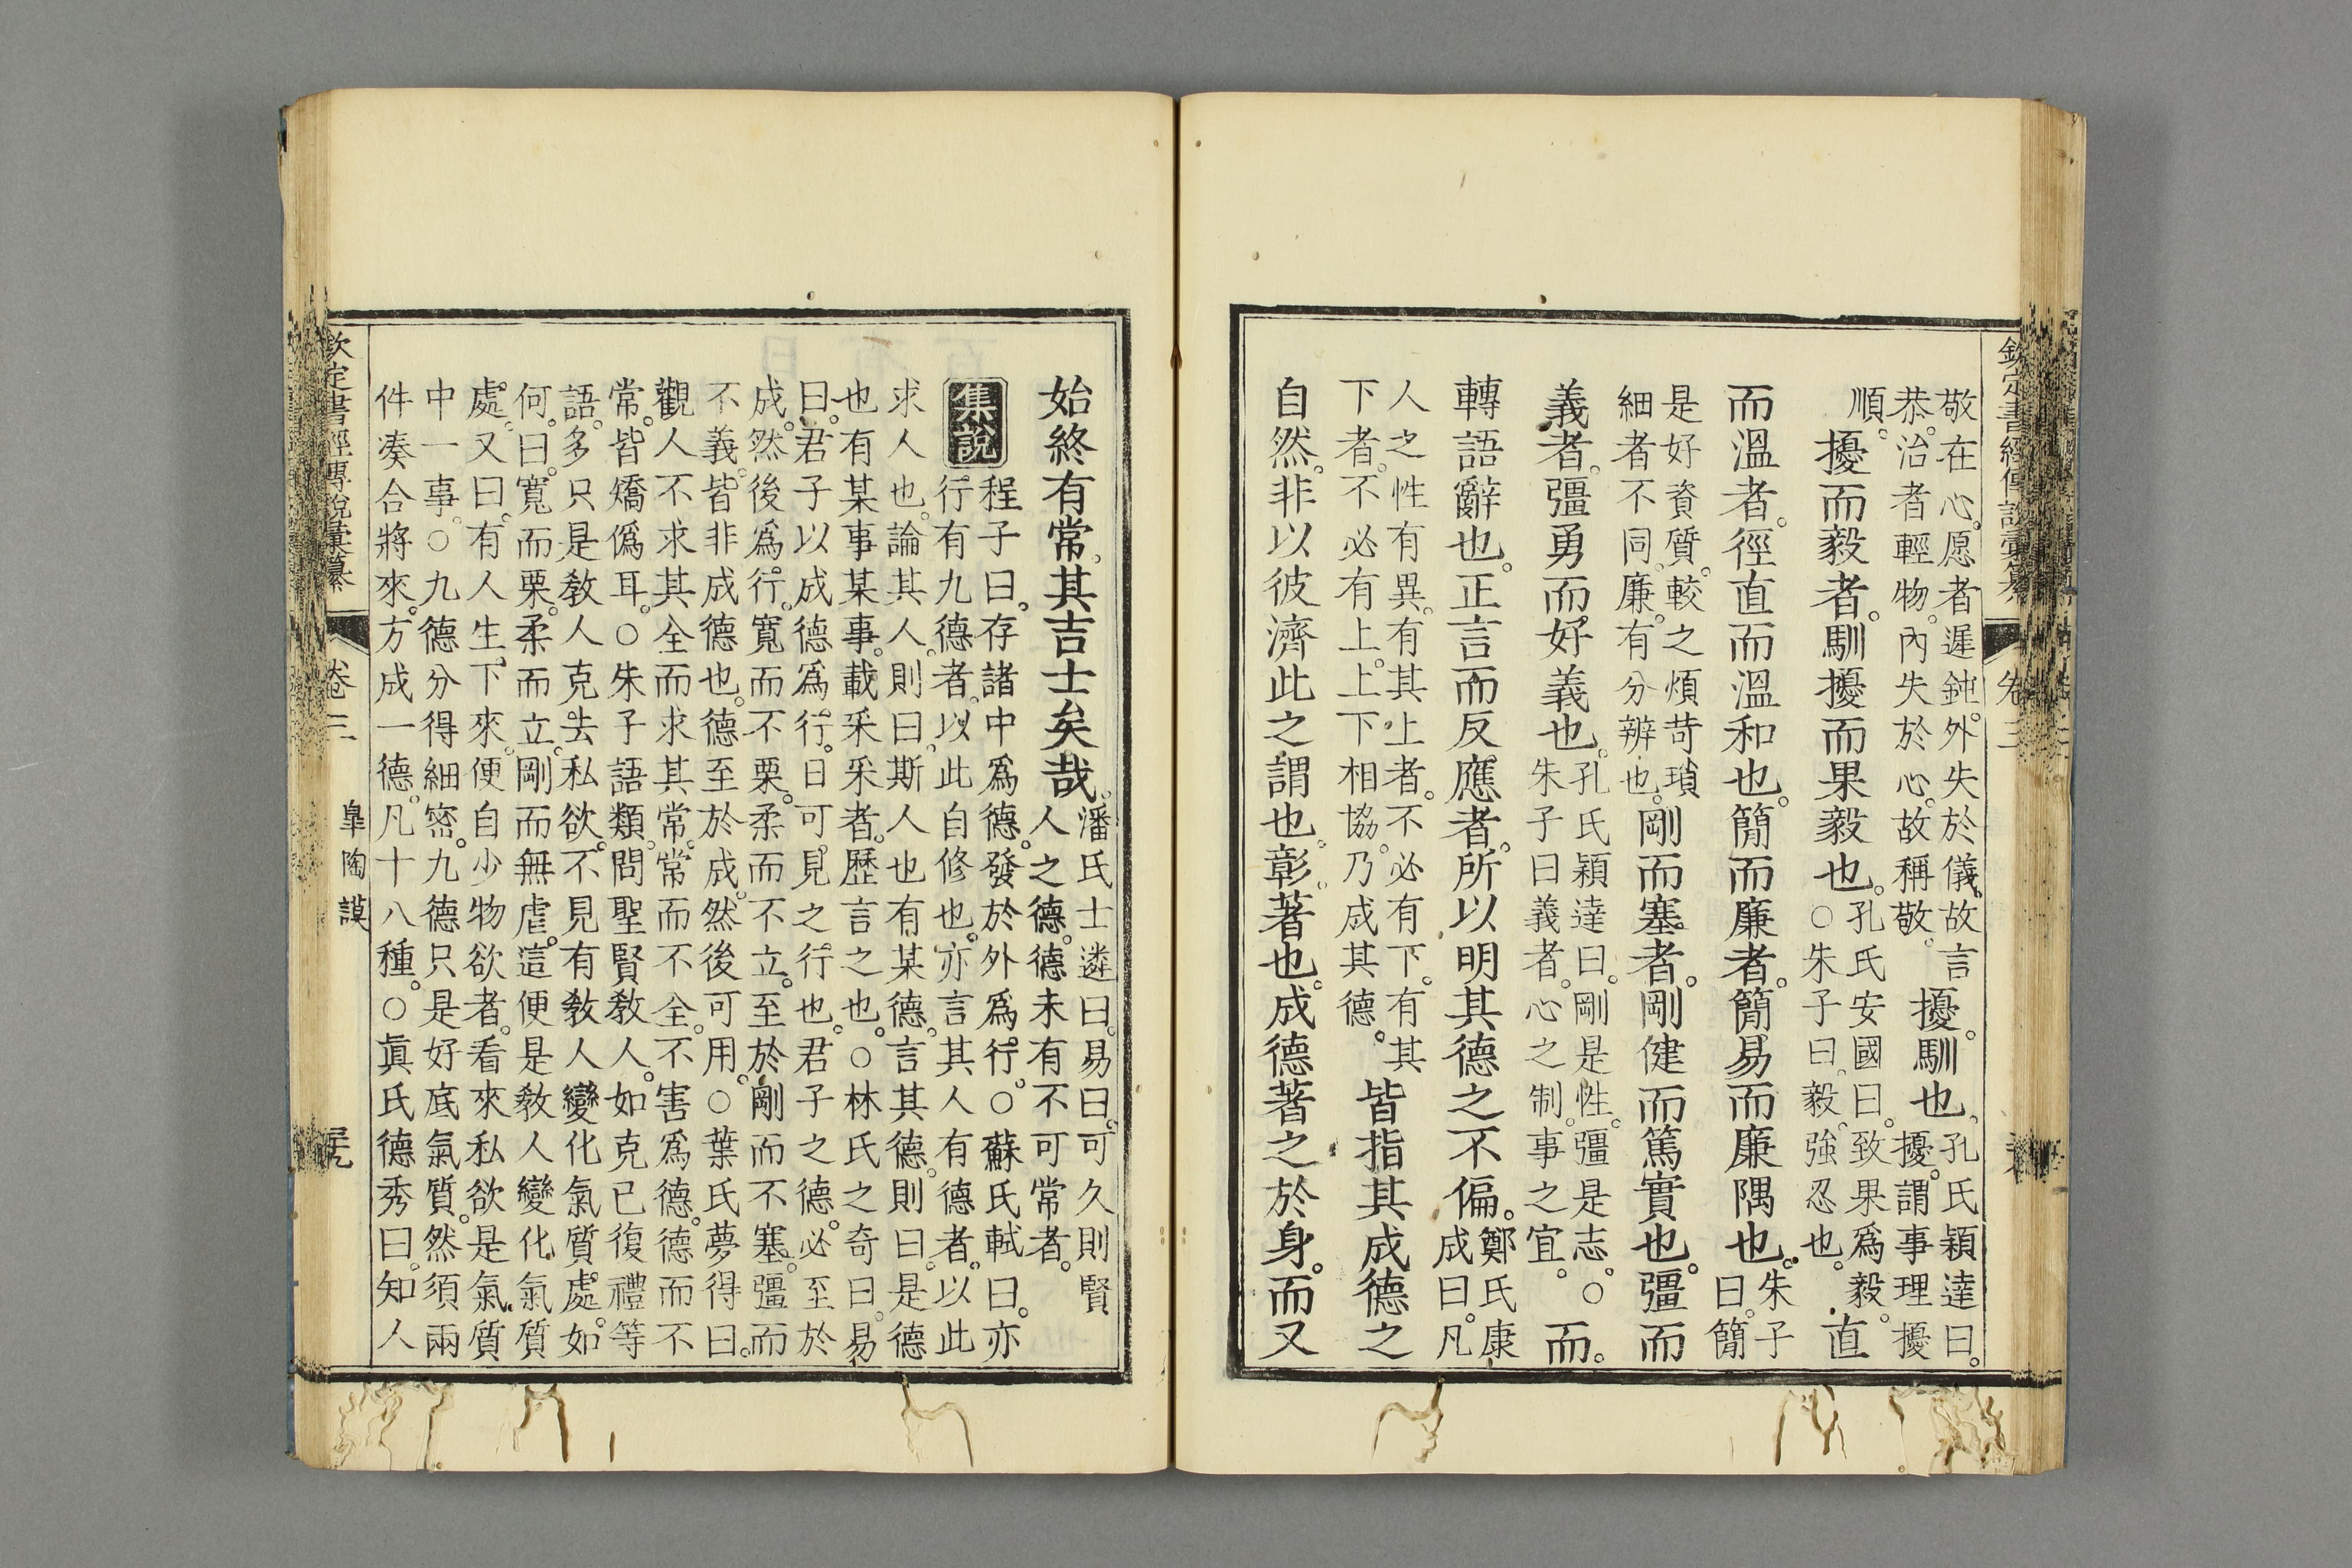 欽定書經傳說彙纂
卷三
敬在心。愿者遲鈍。外失於儀。故言
恭。治者輕物。內失於心。故稱敬。
擾。馴也。
孔氏穎達曰。
擾。謂事理擾
順。
擾而毅者。馴擾而果毅也。
孔氏安國曰。致果爲毅。
○朱子曰。毅。強忍也。
直
而溫者。徑直而溫和也。簡而廉者。簡易而廉隅也。
朱子
曰。簡
是好資質。較之煩苛瑣
細者不同。廉。有分辨也。
剛而塞者。剛健而篤實也。彊而
義者。彊勇而好義也。
孔氏穎達曰。剛是性。彊是志。○
朱子曰義者。心之制。事之宜。
而。
轉語辭也。正言而反應者。所以明其德之不偏。
鄭氏康
成曰。凡
人之性有異。有其上者。不必有下。有其
下者。不必有上。上下相協。乃成其德。
皆指其成德之
自然。非以彼濟此之謂也。彰。著也。成德著之於身。而又
始終有常。其吉士矣哉。
潘氏士遴曰。易曰。可久則賢
人之德。德未有不可常者。
集說
程子曰。存諸中爲德。發於外爲行。○蘇氏軾曰。亦
行有九德者。以此自修也。亦言其人有德者。以此
求人也。論其人。則曰。斯人也有某德。言其德。則曰。是德
也有某事某事。載采采者。歷言之也。○林氏之奇曰。易
曰。君子以成德爲行。日可見之行也。君子之德。必至於
成。然後爲行。寬而不栗。柔而不立。至於剛而不塞。彊而
不義。皆非成德也。德至於成。然後可用。○葉氏夢得曰。
觀人不求其全而求其常。常而不全。不害爲德。德而不
常。皆矯僞耳。○朱子語類。問聖賢敎人。如克已復禮等
語。多只是敎人克去私欲。不見有敎人變化氣質處。如
何。曰。寬而栗。柔而立。剛而無虐。這便是敎人變化氣質
處。又曰。有人生下來。便自少物欲者。看來私欲是氣質
中一事。○九德分得細密。九德只是好底氣質。然須兩
件凑合將來。方成一德。凡十八種。○眞氏德秀曰。知人
欽定書經傳說彙纂
卷三
皐陶謨